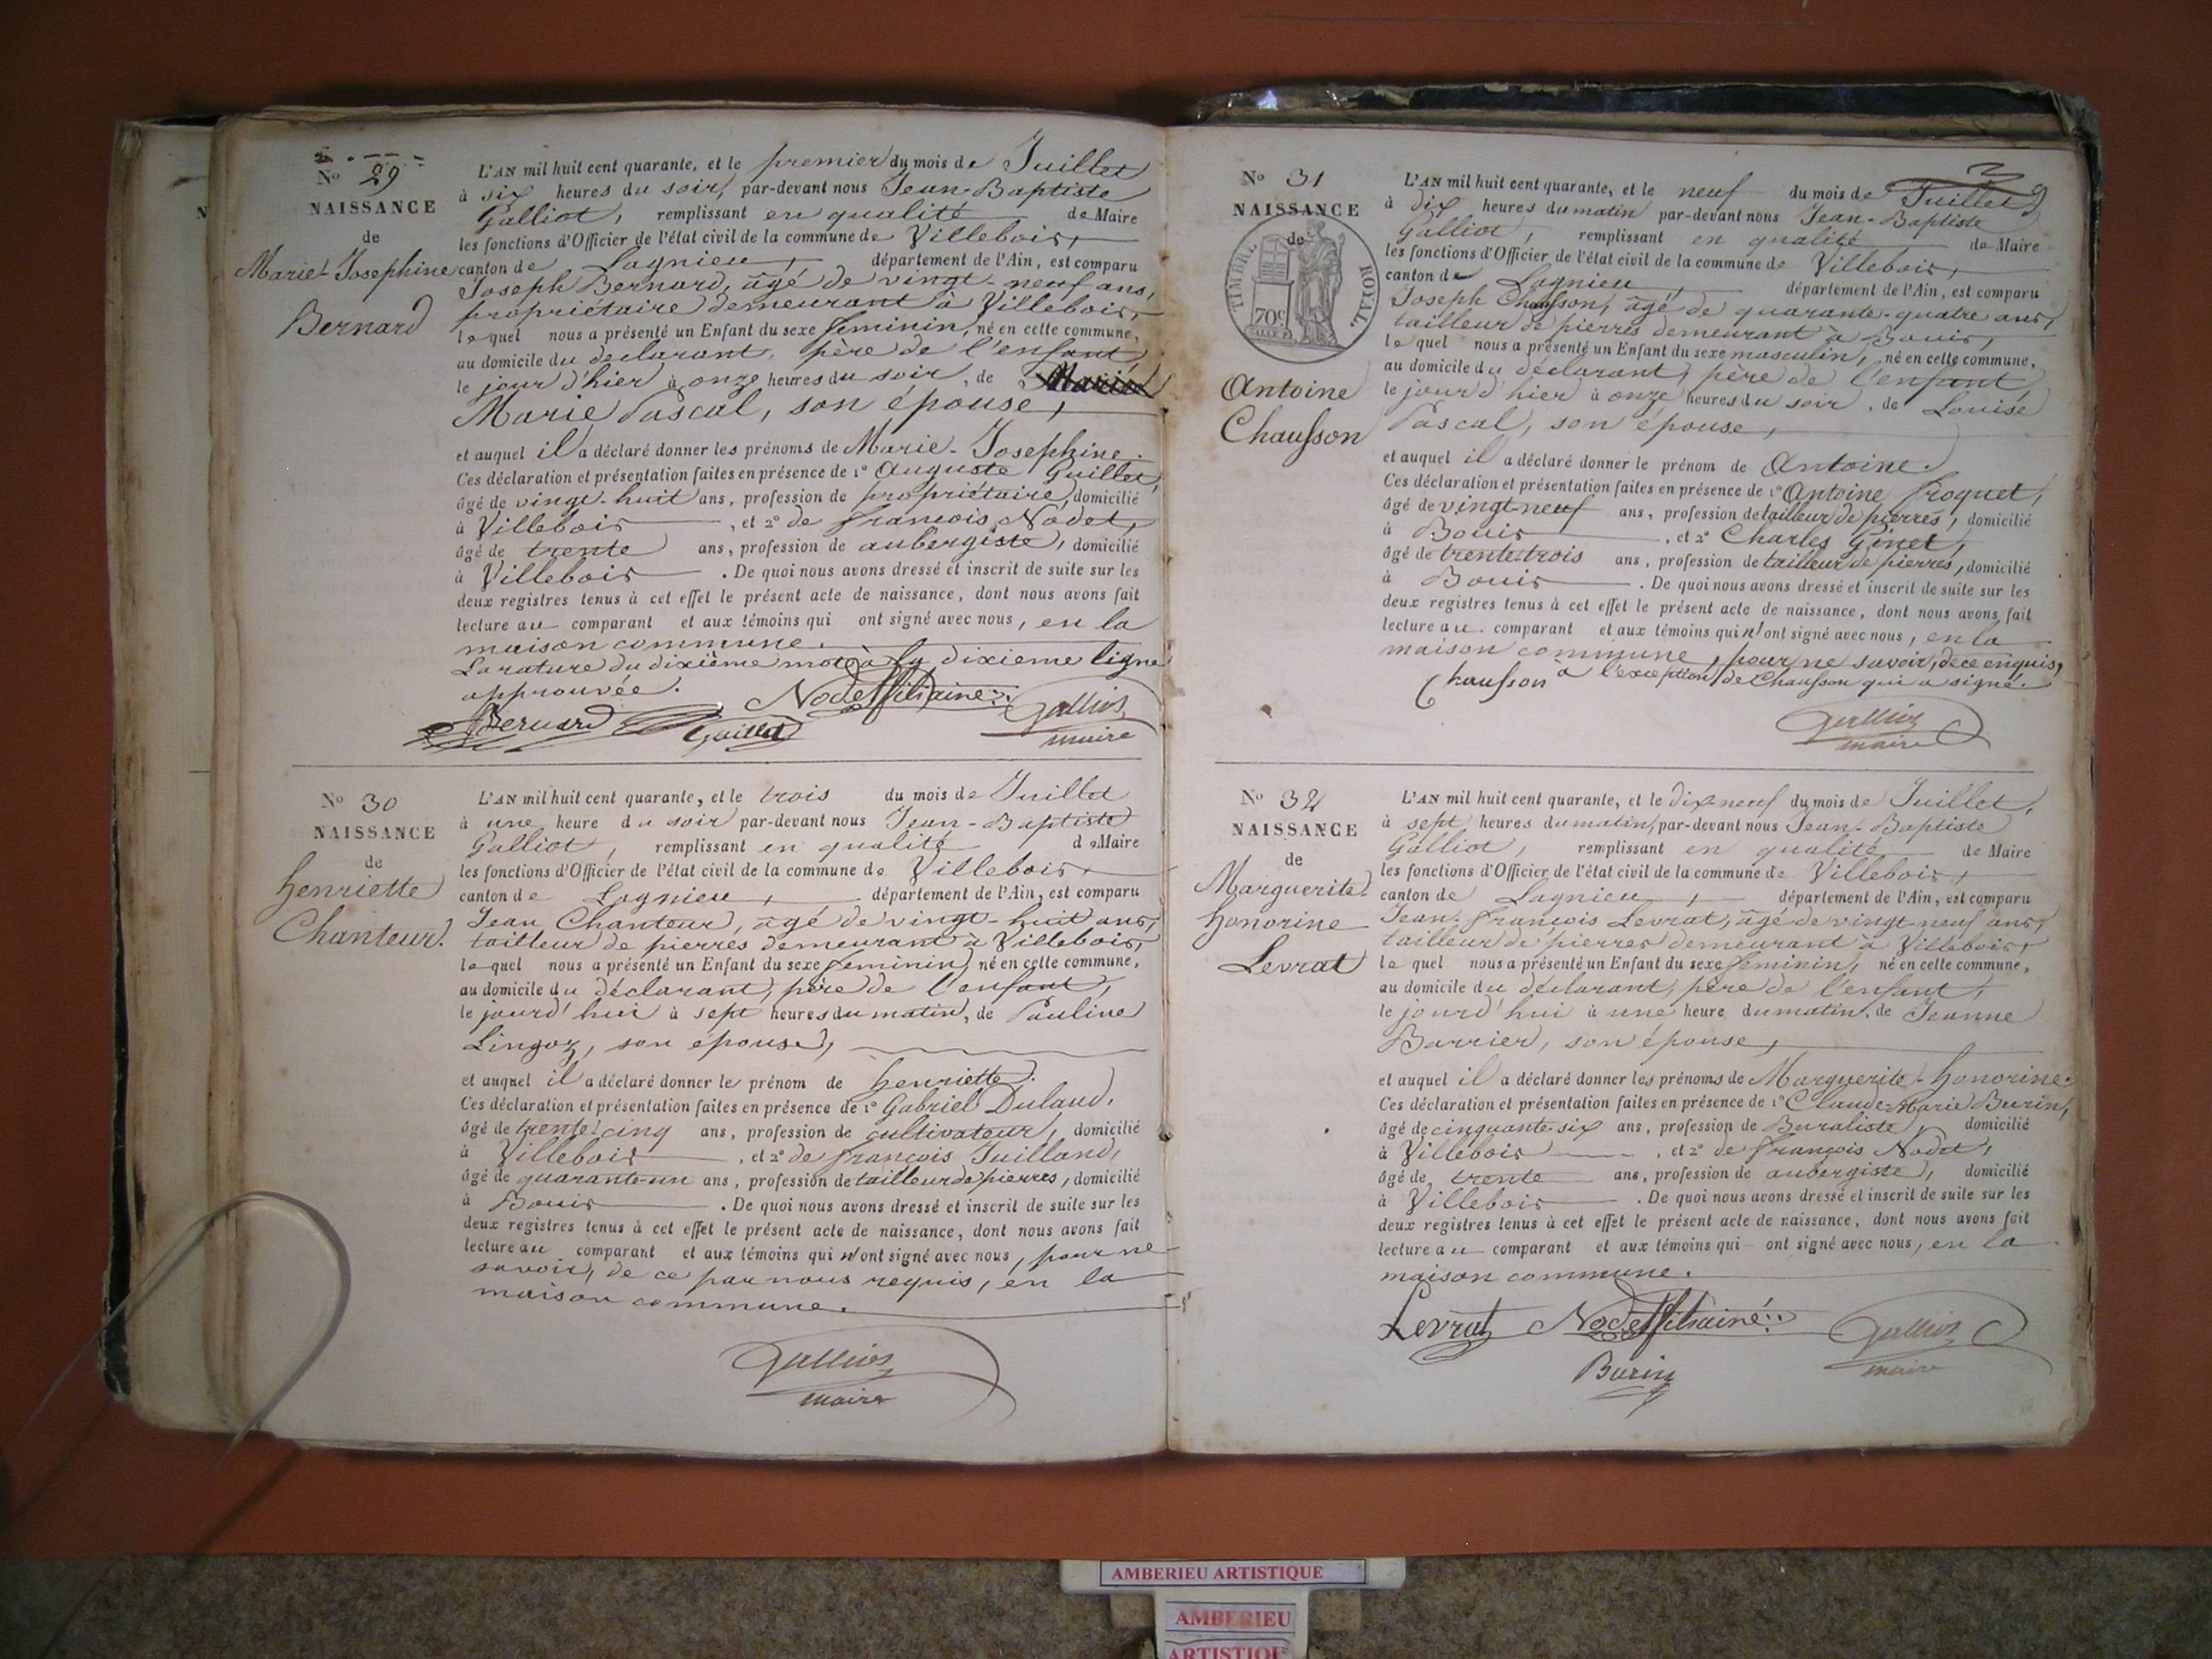 No 29
NAISSANCE
de
Marie-Josephine
Bernard
L'AN mil huit cent quarante, et le premier du mois de Juillet
à six heures du soir, par-devant nous Jean-Baptiste
Galliot, remplissant en qualité de Maire
les fonctions d'Officier de l'état civil de la commune de Villebois,
canton de Lagnieu, département de l'Ain, est comparu
Joseph Bernard, âgé de vingt-neuf ans,
propriétaire demeurant à Villebois,
lequel nous a présenté un Enfant du sexe feminin, né en cette commune,
au domicile du declarant, père de l'enfant,
le jour d'hier à onze heures du soir, de Marie
Marie Pascal, son épouse,
et auquel il a déclaré donner les prénoms de Marie-Josephine.
Ces déclaration et présentation faites en présence de 1° Auguste Guillet,
âgé de vingt-huit ans, profession de propriétaire, domicilié
à Villebois, et 2° de François Nodet,
âgé de trente ans, profession de aubergiste, domicilié
à Villebois. De quoi nous avons dressé et inscrit de suite sur les
deux registres tenus à cet effet le présent acte de naissance, dont nous avons fait
lecture au comparant et aux témoins qui ont signé avec nous, en la
maison commune.
La rature du dixième mot à la dixieme ligne
approuvée.
Nodet
Bernard Guillet Galliot
maire
No 30
NAISSANCE
de
henriette
Chanteur.
L'AN mil huit cent quarante, et le trois du mois de Juillet
à une heure du soir par-devant nous Jean-Baptiste
Galliot, remplissant en qualité de Maire
les fonctions d'Officier de l'état civil de la commune de Villebois,
canton de Lagnieu, département de l'Ain, est comparu
Jean Chanteur, âgé de vingt-huit ans,
tailleur de pierres demeurant à Villebois,
lequel nous a présenté un Enfant du sexe feminin, né en cette commune,
au domicile du déclarant, père de l'enfant,
le jourd'hui à sept heures du matin, de Pauline
Lingoz, son epouse,
et auquel il a déclaré donner le prénom de henriette.
Ces déclaration et présentation faites en présence de 1° Gabriel Dulaud,
âgé de trente-cinq ans, profession de cultivateur, domicilié
à Villebois, et 2° de françois Juilland,
âgé de quarante-un ans, profession de tailleur de pierres, domicilié
à Bouis. De quoi nous avons dressé et inscrit de suite sur les
deux registres tenus à cet effet le présent acte de naissance, dont nous avons fait
lecture au comparant et aux témoins qui n'ont signé avec nous, pour ne
savoir, de ce par nous requis, en la
maison commune.
Galliot
maire
No 31
NAISSANCE
de
TIMBRE ROYAL
70c
Antoine
Chausson
L'AN mil huit cent quarante, et le neuf du mois de Juillet
à dix heures du matin par-devant nous Jean-Baptiste
Galliot, remplissant en qualité de Maire
les fonctions d'Officier de l'état civil de la commune de Villebois,
canton de Lagnieu, département de l'Ain, est comparu
Joseph Chausson, âgé de quarante-quatre ans,
tailleur de pierres demeurant à Bouis,
lequel nous a présenté un Enfant du sexe masculin, né en cette commune,
au domicile du déclarant, père de l'enfant,
le jour d'hier à onze heures du soir, de Louise
Pascal, son épouse,
et auquel il a déclaré donner le prénom de Antoine.
Ces déclaration et présentation faites en présence de 1° Antoine froquet,
âgé de vingt-neuf ans, profession de tailleur de pierres, domicilié
à Bouis, et 2° Charles Ginet,
âgé de trente-trois ans, profession de tailleur de pierres, domicilié
à Bouis. De quoi nous avons dressé et inscrit de suite sur les
deux registres tenus à cet effet le présent acte de naissance, dont nous avons fait
lecture au comparant et aux témoins qui n'ont signé avec nous, en la
maison commune, pour ne savoir, de ce enquis,
à l'exception de Chausson qui a signé.
Chausson
Galliot
maire
No 32
NAISSANCE
de
Marguerite-
honorine
Levrat
L'AN mil huit cent quarante, et le dix neuf du mois de Juillet,
à sept heures du matin, par-devant nous Jean-Baptiste
Galliot, remplissant en qualité de Maire
les fonctions d'Officier de l'état civil de la commune de Villebois,
canton de Lagnieu, département de l'Ain, est comparu
Jean-françois Levrat, âgé de vingt-neuf ans,
tailleur de pierres demeurant à Villebois,
lequel nous a présenté un Enfant du sexe feminin, né en cette commune,
au domicile du déclarant, père de l'enfant,
le jourd'hui à une heure du matin, de Jeanne
Barrier, son épouse,
et auquel il a déclaré donner les prénoms de Marguerite-honorine.
Ces déclaration et présentation faites en présence de 1° Claude-Marie Burin,
âgé de cinquante-six ans, profession de Buraliste, domicilié
à Villebois, et 2° de françois Nodet,
âgé de trente ans, profession de aubergiste, domicilié
à Villebois. De quoi nous avons dressé et inscrit de suite sur les
deux registres tenus à cet effet le présent acte de naissance, dont nous avons fait
lecture au comparant et aux témoins qui ont signé avec nous, en la
maison commune.
Levrat Nodet Galliot
Burin maire
AMBERIEU ARTISTIQUE
AMBERIEU
ARTISTIQUE